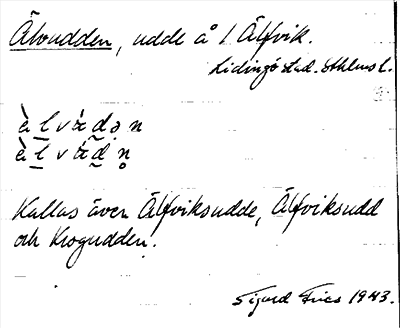 Älvudden, udde å 1 Älfvik.
Lidingö stad. Sthlms l.
Kallas även Älfviksudde, Älfviksudd
och Krogudden.
Sigurd Fries 1943.